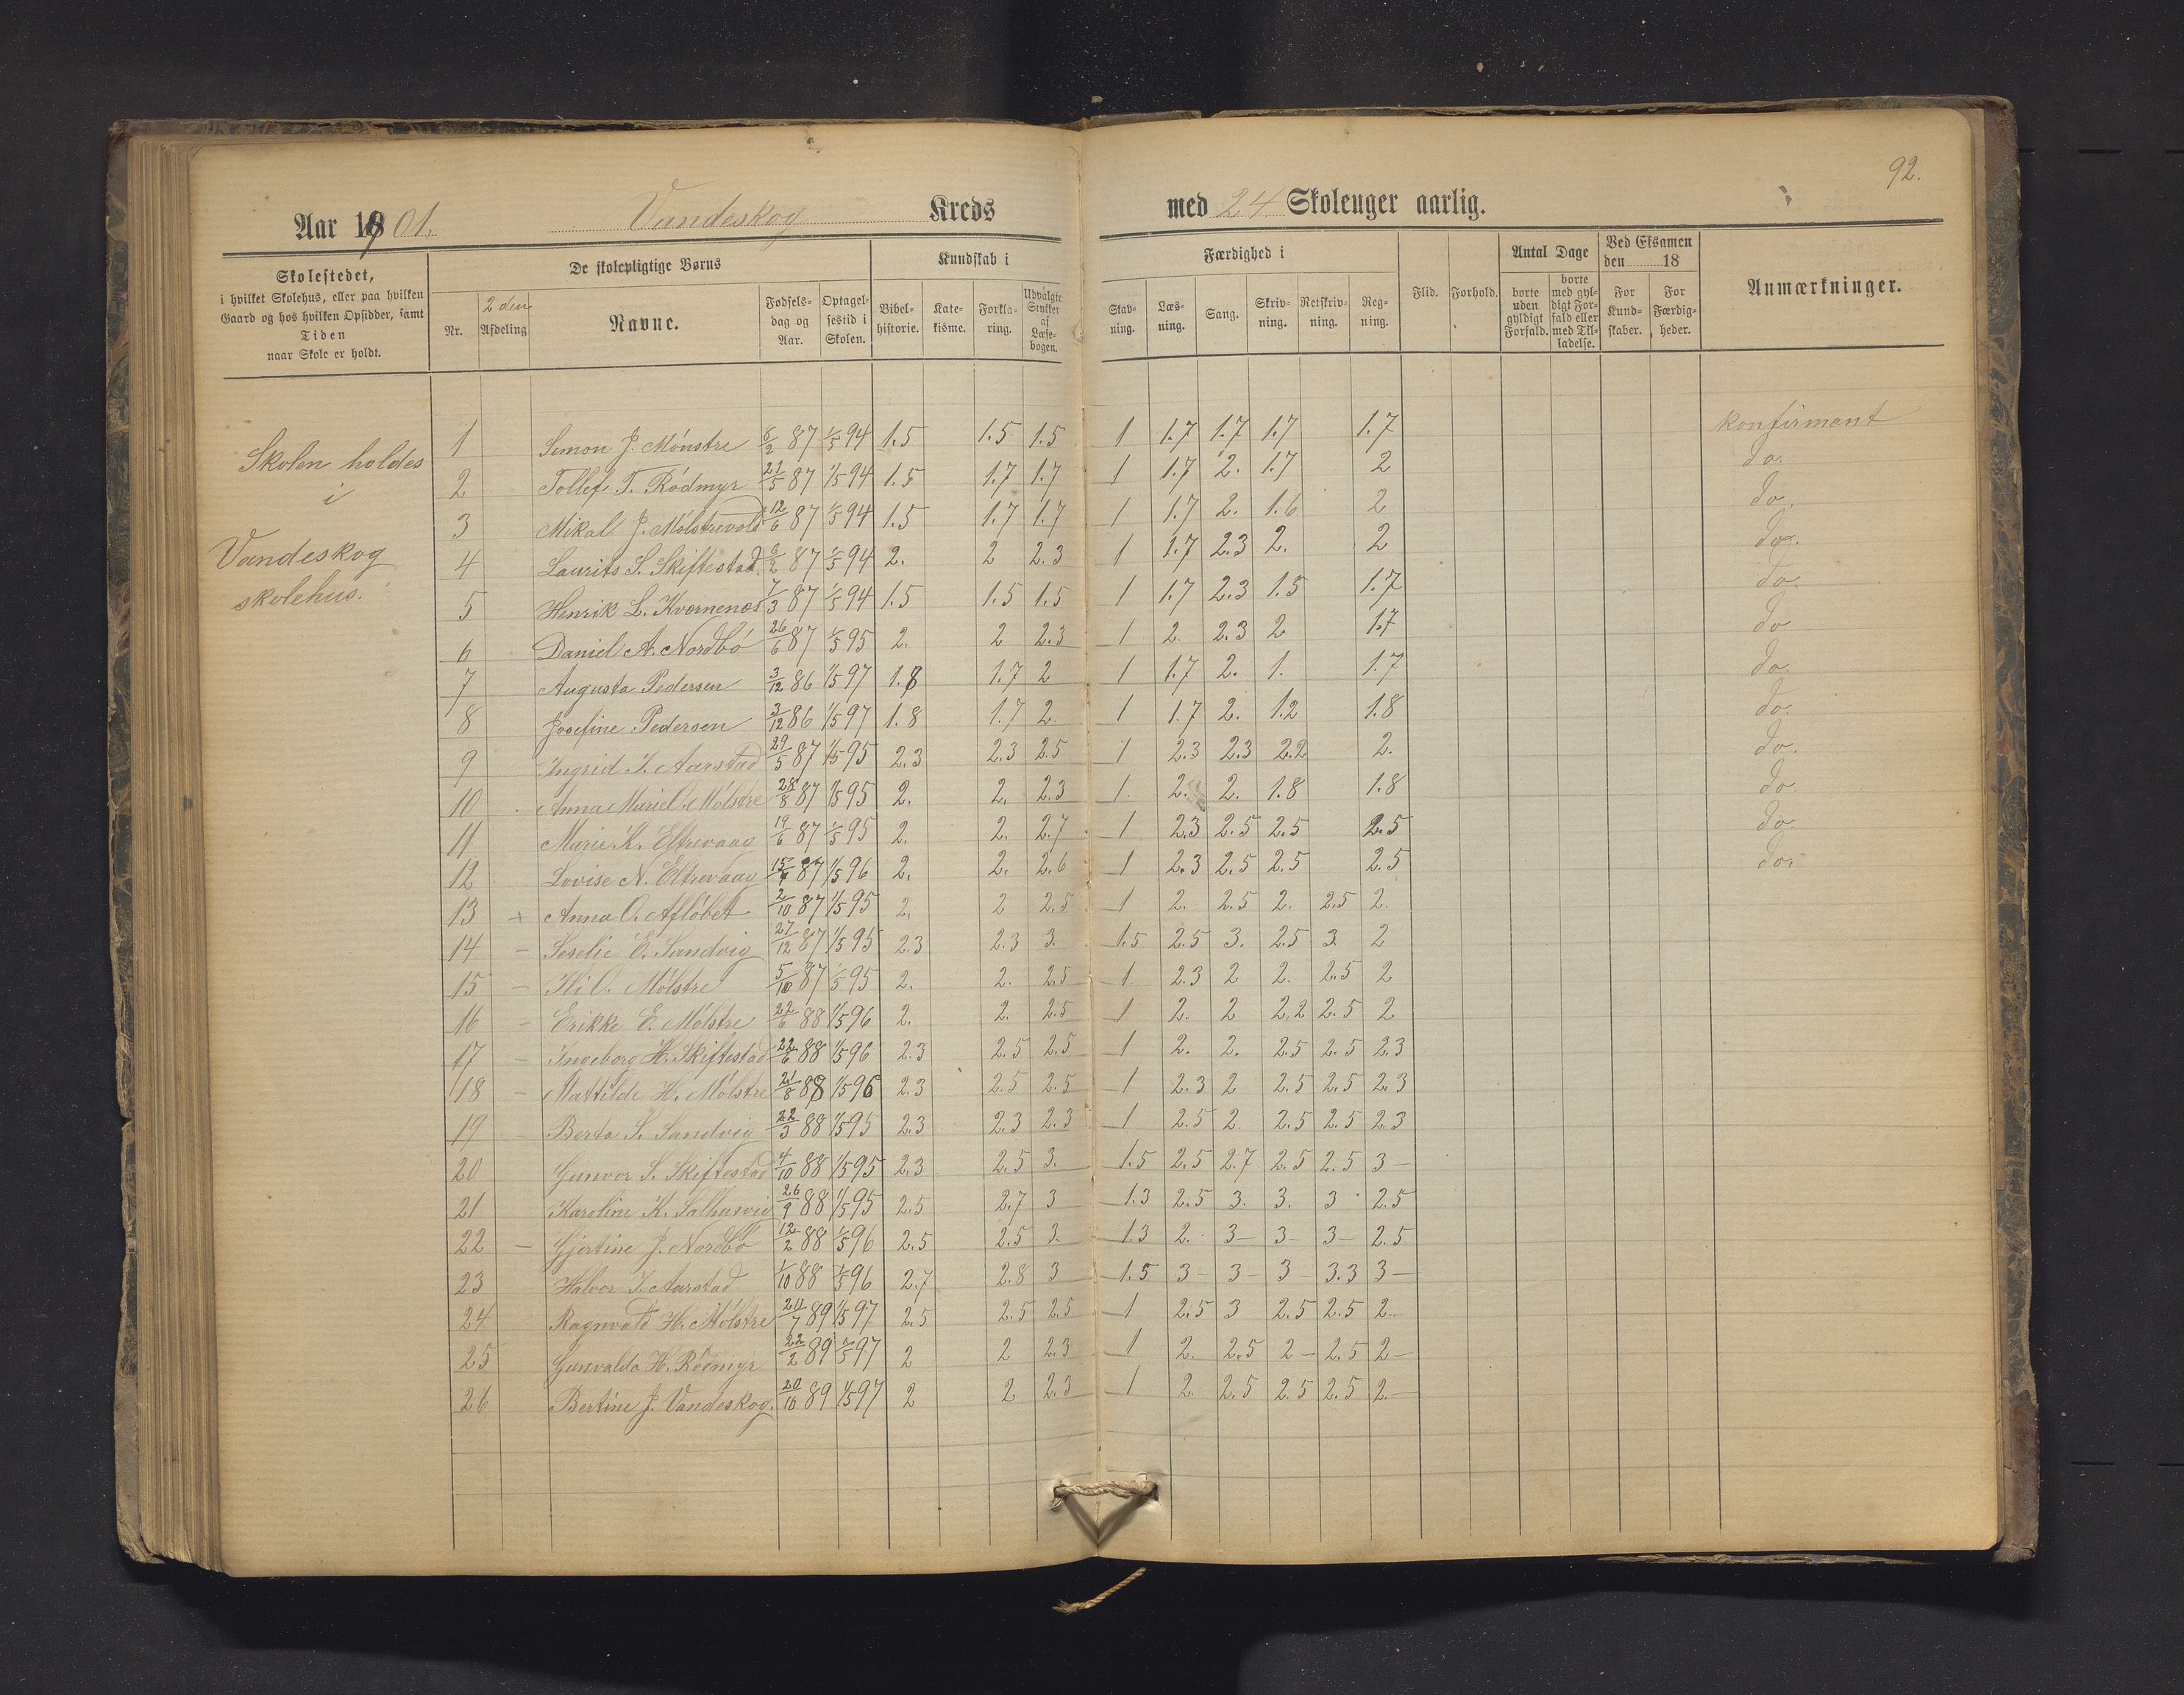 92.
Aar 1901. Vandeskog Kreds med 24 Skoleuger aarlig.
Skolestedet,
i hvilket Skolehus, eller paa hvilken
Gaard og hos hvilken Opsidder, samt
Tiden
naar Skole er holdt.
De skolepligtige Børns
Nr. 2den Afdeling Navne. Fødselsdag og Aar. Optagelsestid i Skolen.
Kundskab i
Bibelhistorie. Katekisme. Forklaring. Udvalgte Stykker af Læsebogen.
Færdighed i
Stavning. Læsning. Sang. Skrivning. Retskrivning. Regning.
Flid. Forhold.
Antal Dage
borte uden gyldigt Forfald. borte med gyldigt Forfald eller med Tilladelse.
Ved Eksamen den 18
For Kundskaber. For Færdigheder.
Anmærkninger.
Skolen holdes
i
Vandeskog
skolehus.
1 Simon J. Mönstre 6/2 87 1/5 94 1.5 1.5 1.5 1 1.7 1.7 1.7 1.7 konfirmant
2 Tollef T. Rödmyr 21/5 87 1/5 94 1.5 1.7 1.7 1 1.7 2. 1.7 2 do.
3 Mikal J. Mölstrevold 12/6 87 1/5 94 1.5 1.7 1.7 1 1.7 2. 1.6 2 do.
4 Laurits S. Skiftestad 87 1/5 94 2. 2 2.3 1 1.7 2.3 2. 2 do.
5 Henrik L. Kvernenes 7/3 87 1/5 94 1.5 1.5 1.5 1 1.7 2.3 1.5 1.7 do.
6 Daniel A. Nordbö 26/6 87 1/5 95 2. 2 2.3 1 2. 2.3 2 1.7 do
7 Augusta Pedersen 3/12 86 1/5 97 1.8 1.7 2 1 1.7 2. 1. 1.7 do.
8 Josefine Pedersen 3/12 86 1/5 97 1.8 1.7 2 1 1.7 2. 1.2 1.8 do.
9 Ingrid I. Aarstad 29/5 87 1/5 95 2.3 2.3 2.5 1 2.3 2.3 2.2 2. do.
10 Anna Marie O. Mölstre 28/8 87 1/5 95 2. 2. 2.3 1. 2. 2. 1.8 1.8 do
11 Marie K. Eltrevaag 19/6 87 1/5 95 2. 2. 2.7 1 2.3 2.5 2.5 2.5 do
12 Lovise N. Eltrevaag 87 1/5 96 2. 2. 2.6 1 2.3 2.5 2.5 2.5 do.
13 + Anna O. Aflöbet 2/10 87 1/5 95 2. 2 2.5 1 2. 2.5 2. 2.5 2.
14 - Seselie E. Sandvig 27/12 87 1/5 95 2.3 2.3 3. 1.5 2.5 3. 2.5 3. 2
15 - O. Mölstre 5/10 87 1/5 95 2. 2. 2.5 1. 2.3 2 2. 2.5 2
16 - Erikke E. Mölstre 22/6 88 1/5 96 2. 2. 2.5 1 2. 2 2.2 2.5 2
17 - Ingeborg H. Skiftestad 22/6 88 1/5 96 2.3 2.5 2.5 1 2. 2. 2.5 2.5 2.3
18 - Mattilde H. Mölstre 21/8 88 1/5 96 2.3 2.5 2.5 1 2.3 2 2.5 2.5 2.3
19 - Berta S. Sandvig 22/3 88 1/5 95 2.3 2.3 2.3 1 2.5 2. 2.5 2.5 2.3
20 Gunvor S. Skiftestad 4/10 88 1/5 95 2.3 2.5 3. 1.5 2.5 2.7 2.5 2.5 3-
21 Karoline K. Salhusvig 26/9 88 1/5 95 2.5 2.7 3 1.3 2.5 3. 3. 3 2.5
22 - Gjertine J. Nordbö 12/2 88 1/5 96 2.5 2.5 3. 1.3 2. 3- 3- 3- 2.5
23 Halvor I. Aarstad 1/10 88 1/5 96 2.7 2.8 3 1.5 3- 3- 3- 3.3 3-
24 Ragnvald H. Mölstre 89 1/5 97 2.5 2.5 2.5 1 2.5 3 2.5 2.5 2-
25 Gunvalda H. Rödmyr 22/2 89 1/5 97 2 2 2.3 1 2. 2.5 2- 2.5 2-
26 Bertine J. Vandeskog. 20/10 89 1/5 97 2 2 2.3 1 2. 2.5 2.5 2.5 2-